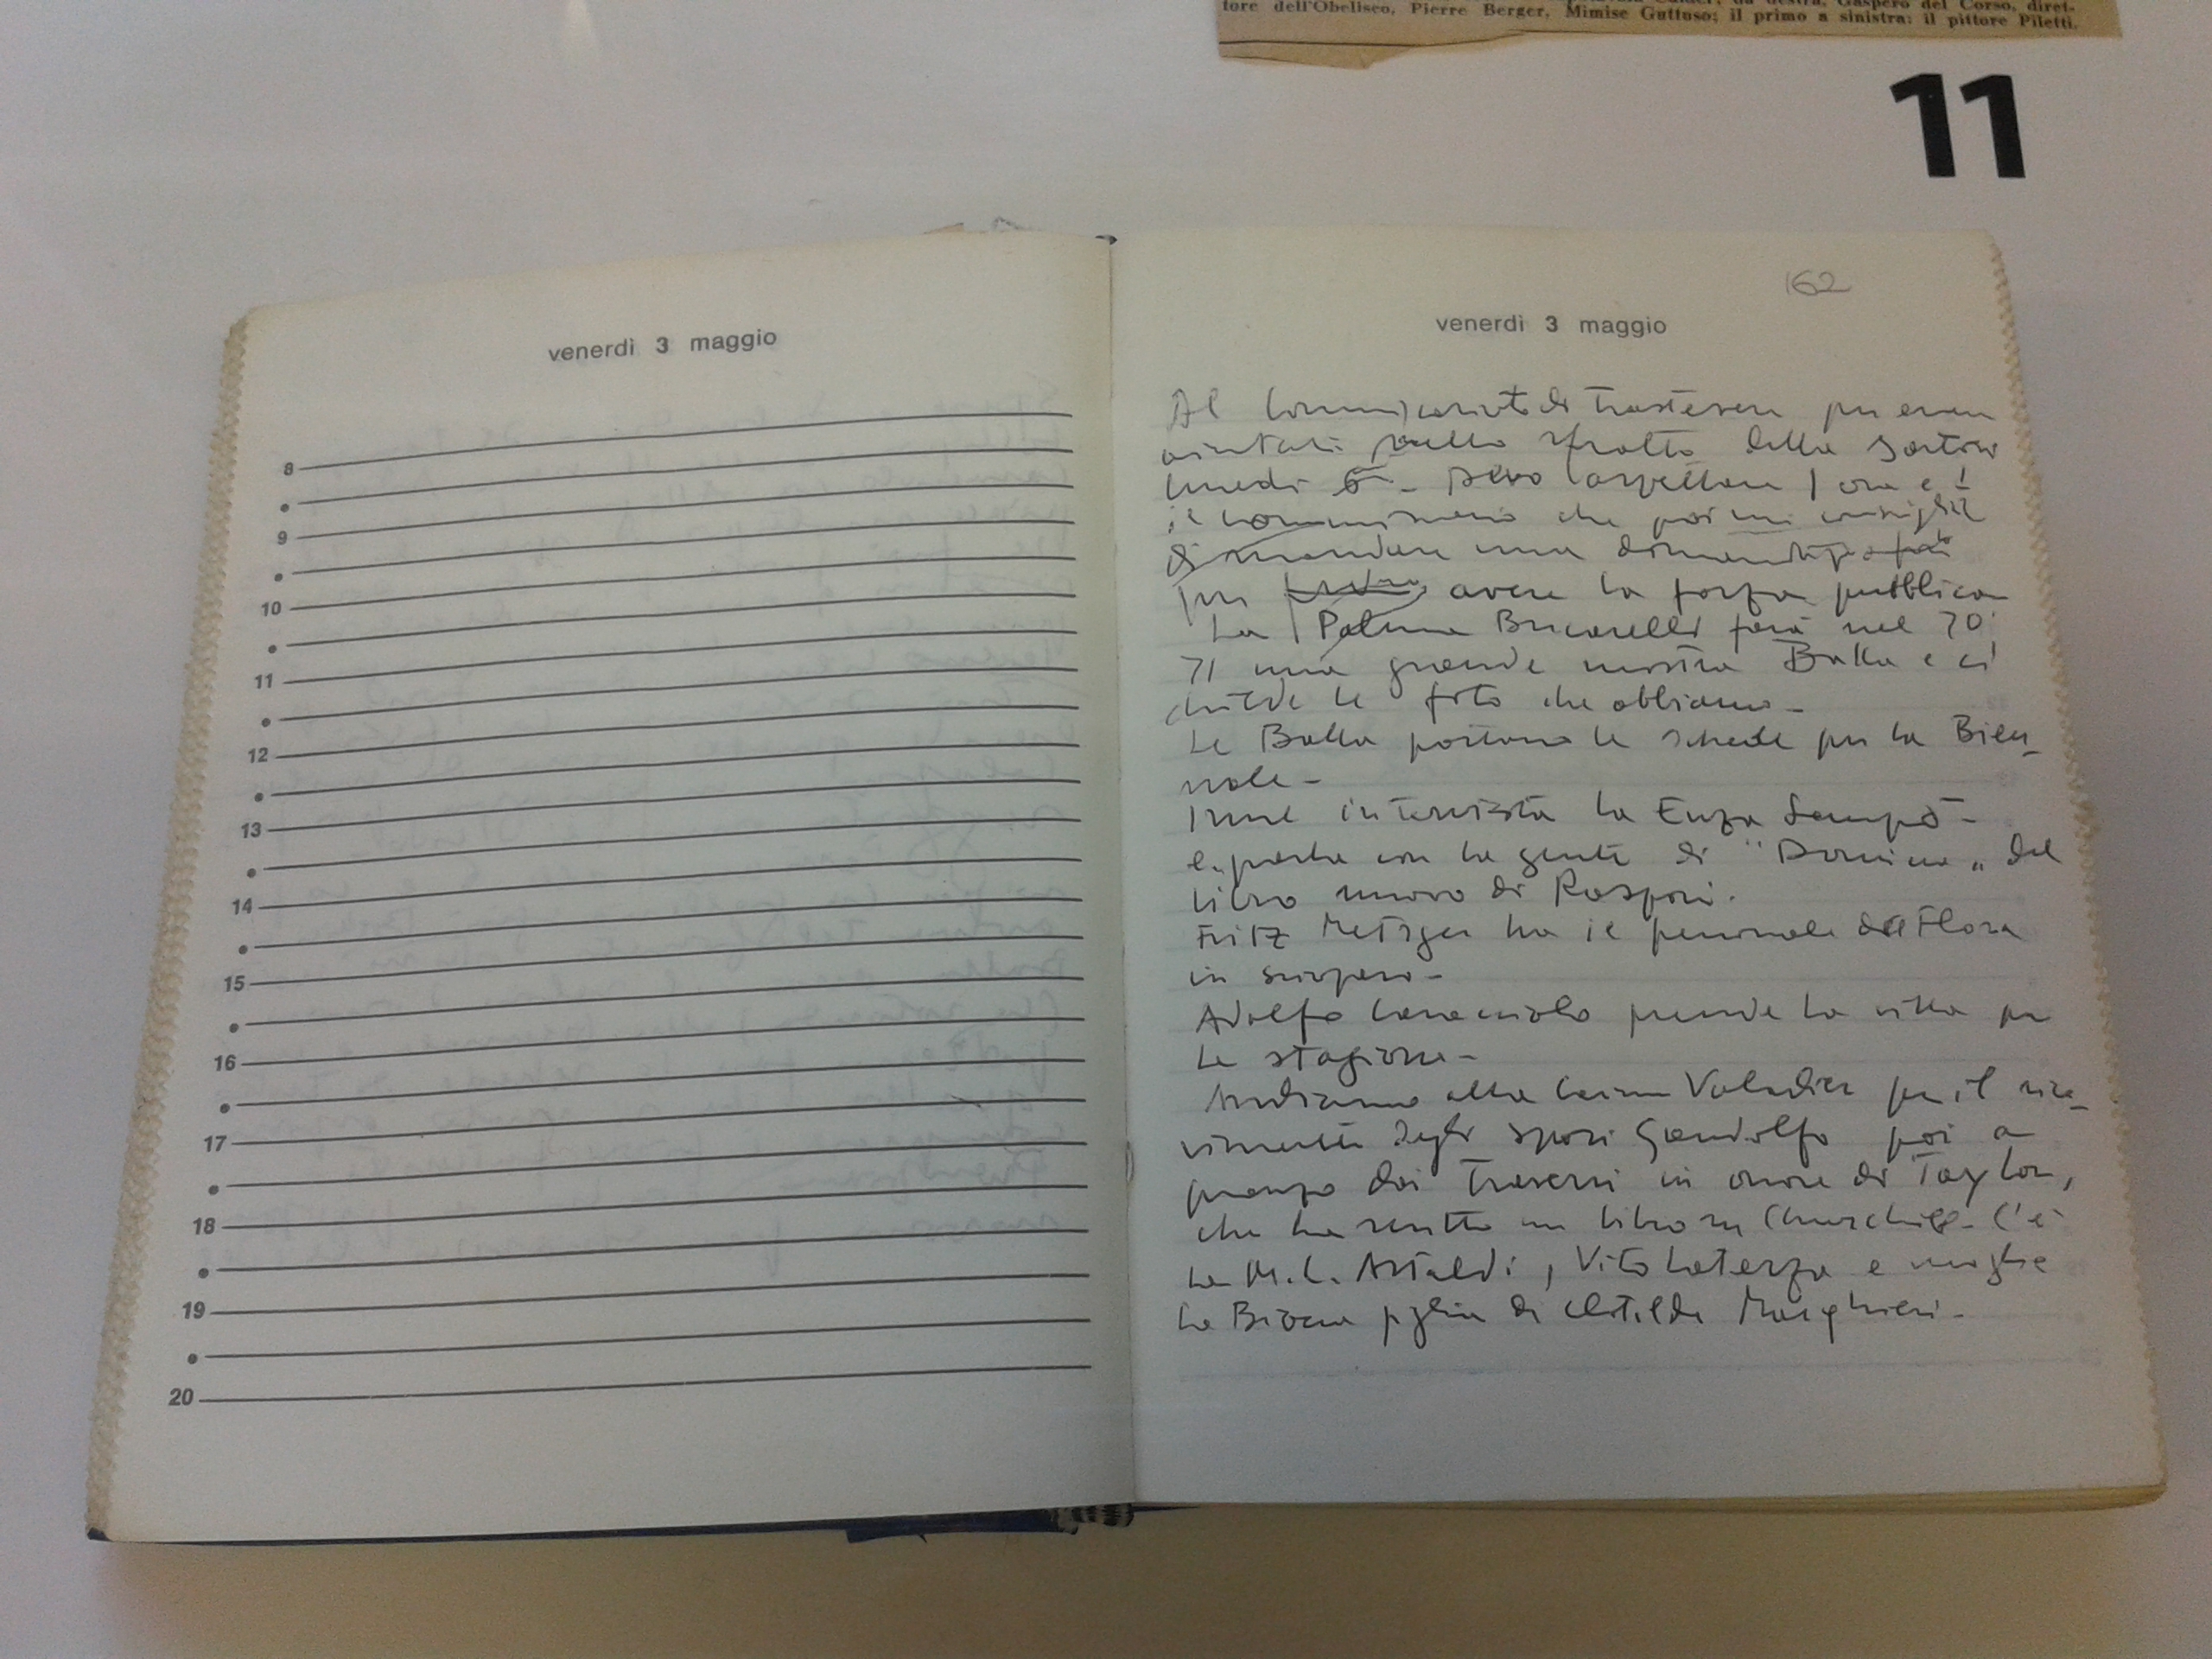 tore dell'Obelisco, Pierre Berger, Mimise Guttuso; il primo a sinistra: il pittore Piletti.
11
venerdì 3 maggio
8
9
10
11
12
13
14
15
16
17
18
19
20
162
venerdì 3 maggio
Al Commissariato di Trastevere per essere
aiutati nello sfratto della Sartori
lunedì 6 - Devo aspettare 1 ora e
il commissario che poi mi consiglia
di mandare una domanda
per avere la forza pubblica
La Palma Bucarelli farà nel 70
71 una grande mostra Balla e ci
chiede le foto che abbiamo -
Le Balla portano le schede per la Bien_
nale -
Irene intervista la Enza Sampò -
e parla con la gente di "Domina" del
libro nuovo di Rasponi.
Fritz Metzger ha il personale del Flora
in sciopero -
Adolfo Caracciolo prende la villa per
la stagione -
Andiamo alla Casina Valadier per il rice_
vimento degli sposi Gandolfo poi a
pranzo dai Traversi in onore di Taylor,
che ha scritto un libro su Churchill - C'è
la M.L. Astaldi, Vito Laterza e moglie
la figlia di Clotilde Marghieri -